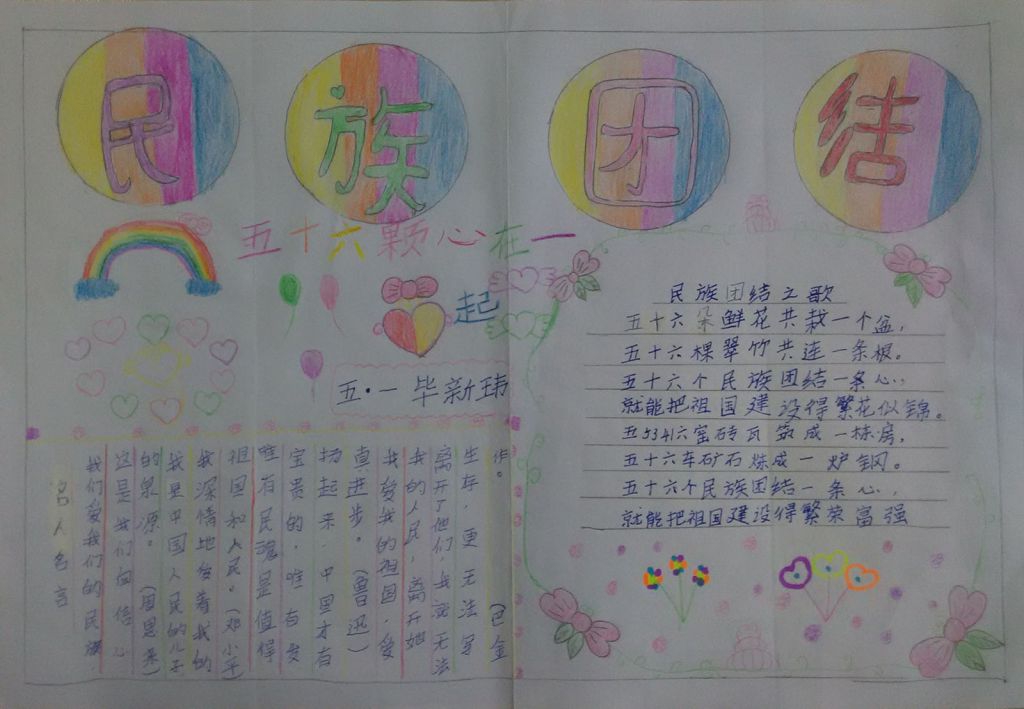 民族团结
五十六颗心在一
起
五·一 毕新玮
名人名言
我们爱我们的民族
这是我们自信心
的泉源。(周恩来)
我是中国人民的儿子
我深情地爱着我的
祖国和人民。(邓小平)
唯有民魂是值得
宝贵的,唯有发
扬起来,中国才有
真进步。(鲁迅)
我爱我的祖国,爱
我的人民,离开她
离开了他们,我就无法
生存,更无法写
作。(巴金
民族团结之歌
五十六朵鲜花共栽一个盆,
五十六棵翠竹共连一条根。
五十六个民族团结一条心,
就能把祖国建设得繁花似锦。
五5341六窑砖瓦筑成一栋房,
五十六车矿石炼成一炉钢。
五十六个民族团结一条心,
就能把祖国建设得繁荣富强